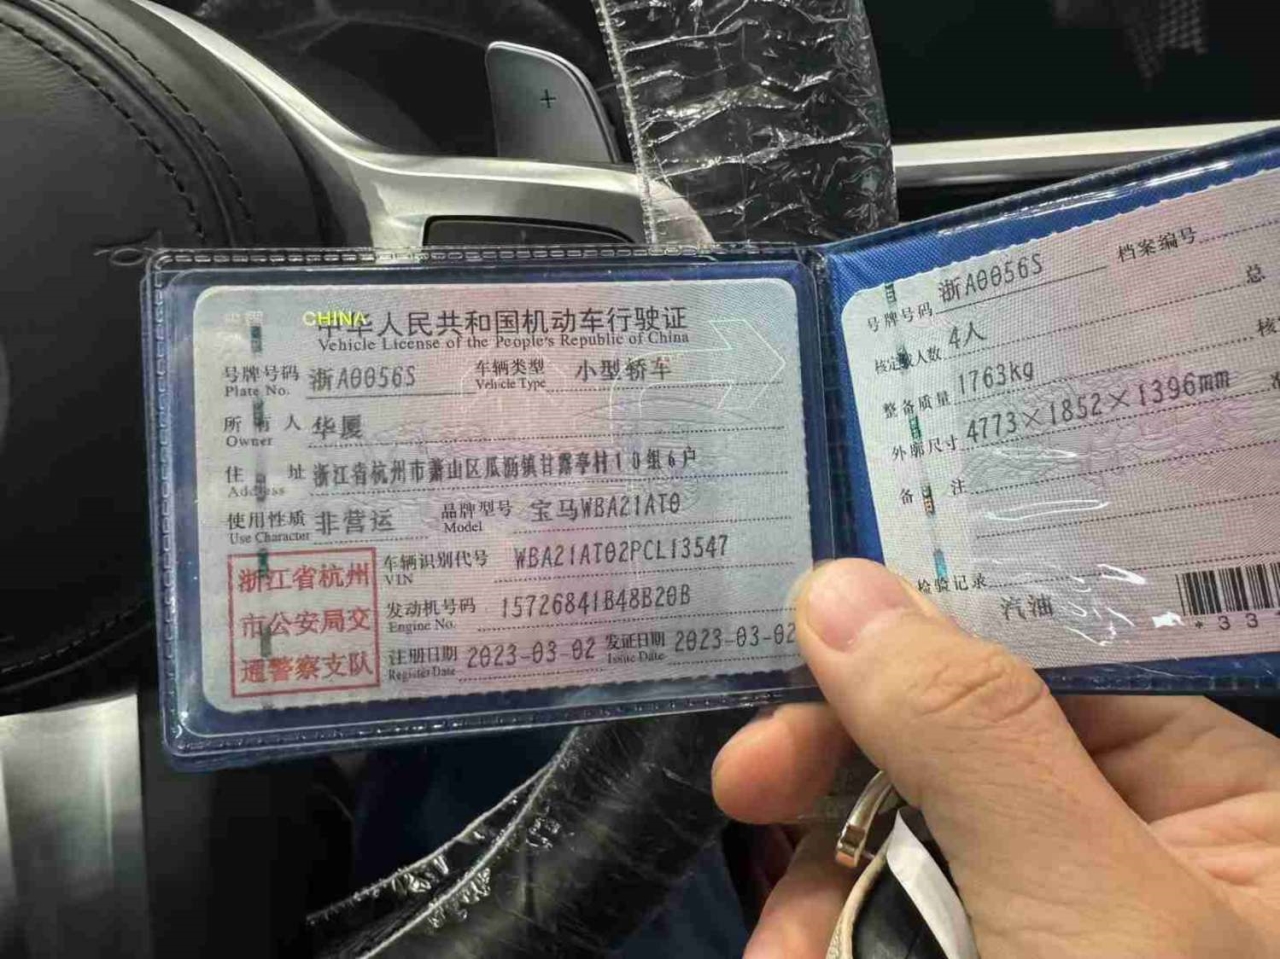 +
CHINA
中华人民共和国机动车行驶证
Vehicle License of the People's Republic of China
号牌号码 浙A0056S 车辆类型 小型轿车
Plate No. Vehicle Type
所有人 华厦
Owner
住址 浙江省杭州市萧山区瓜沥镇甘露亭村10组6户
Address
使用性质 非营运 品牌型号 宝马WBA21AT0
Use Character Model
浙江省杭州
市公安局交
通警察支队
车辆识别代号 WBA21AT02PCL13547
VIN
发动机号码 15726841B48B20B
Engine No.
注册日期 2023-03-02 发证日期 2023-03-02
Register Date Issue Date
号牌号码 浙A0056S 档案编号
核定载人数 4人 总
整备质量 1763kg 核
外廓尺寸 4773×1852×1396mm
备注
检验记录
汽油
*33